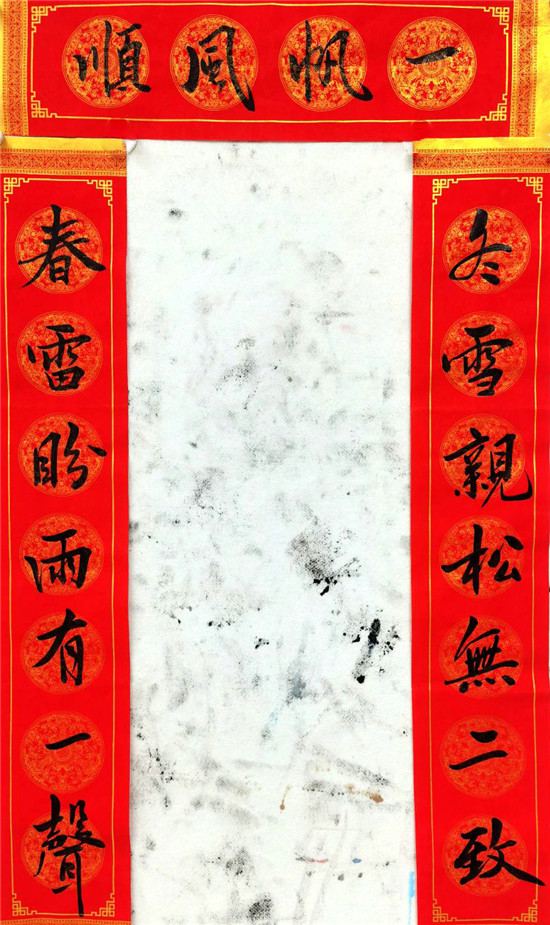 一帆風順
冬雪親松無二致
春雷盼雨有一聲